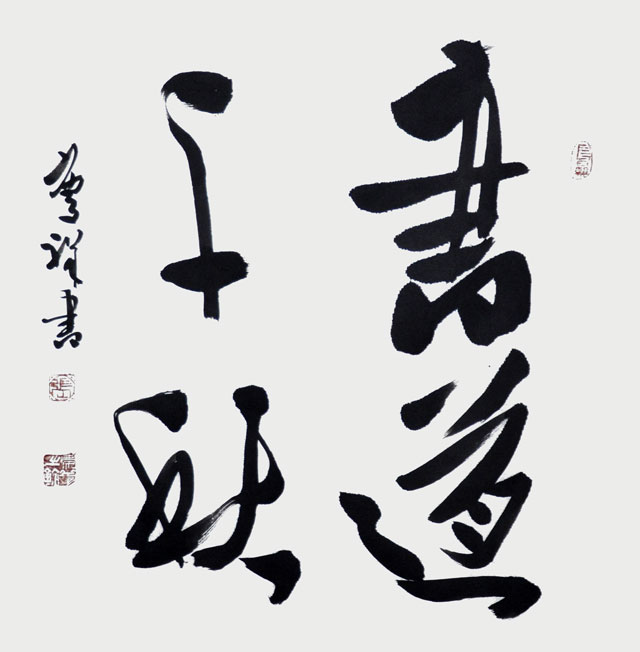 書道
千秋
祥書